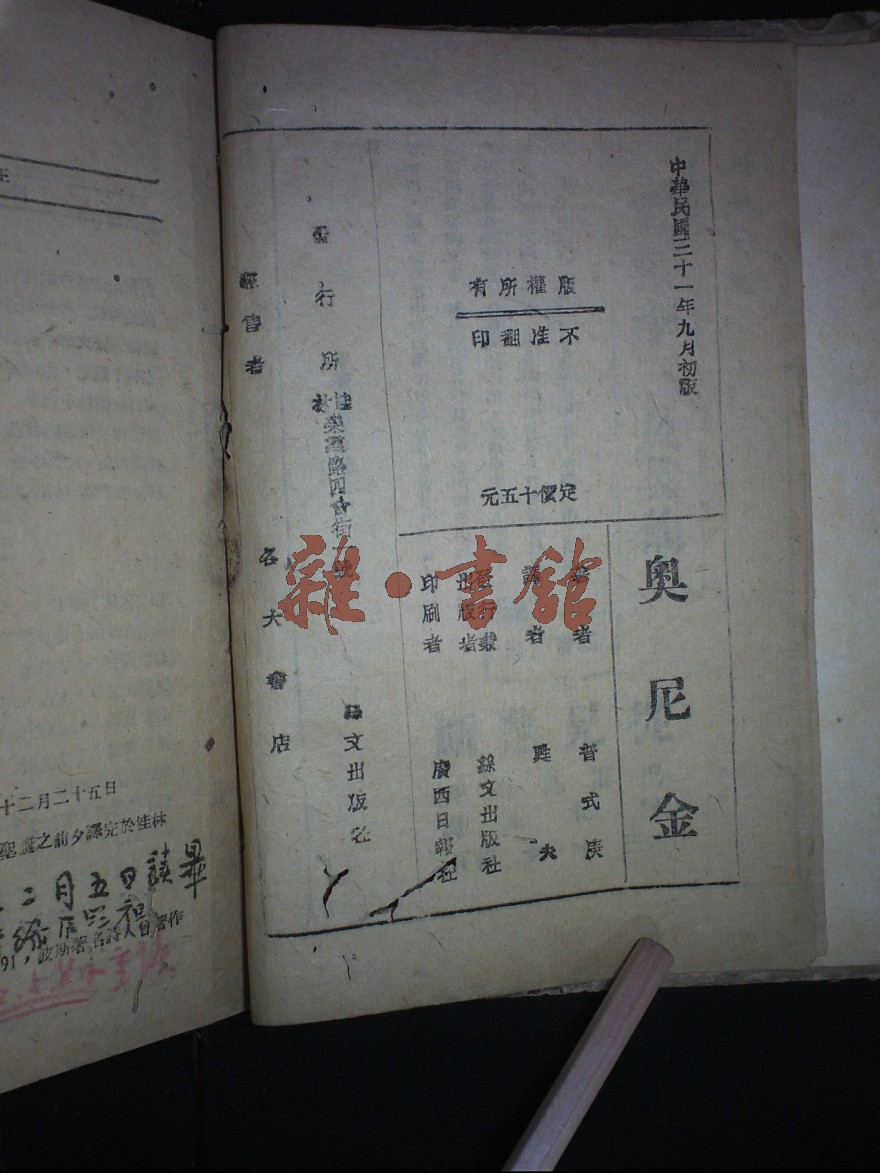 中華民國三十一年九月初版
版權所有
不准翻印
定價十五元
奧尼金
著者 普式庚
譯者 甦夫
發行兼
出版者 絲文出版社
印刷者 廣西日報社
發行所 桂林
路四會街 號
絲文出版社
經售者 各大書店
十二月二十五日
聖誕之前夕譯完於桂林
二月五日讀畢
91，波斯著名詩人曾著作
雜·書館